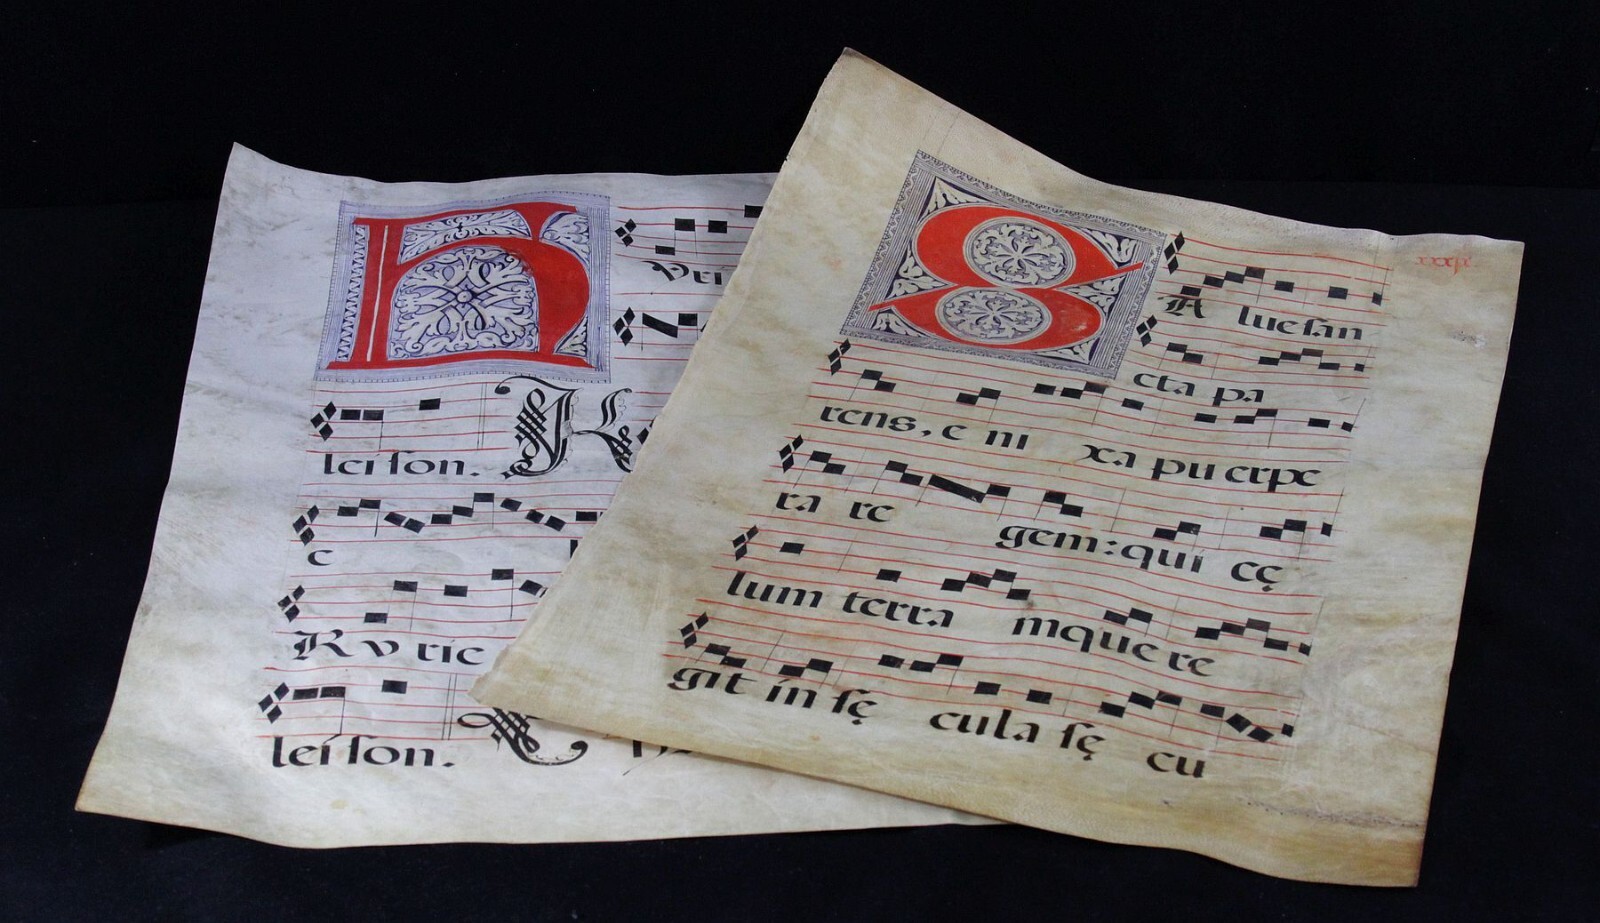 K yri
lei ſon. K
e l
K y rie
lei ſon. C
S A lue ſan
cta pa
rens, e ni xa pu erpe
ra re gem: qui cę
lum terra mque re
git in ſę cula ſę cu